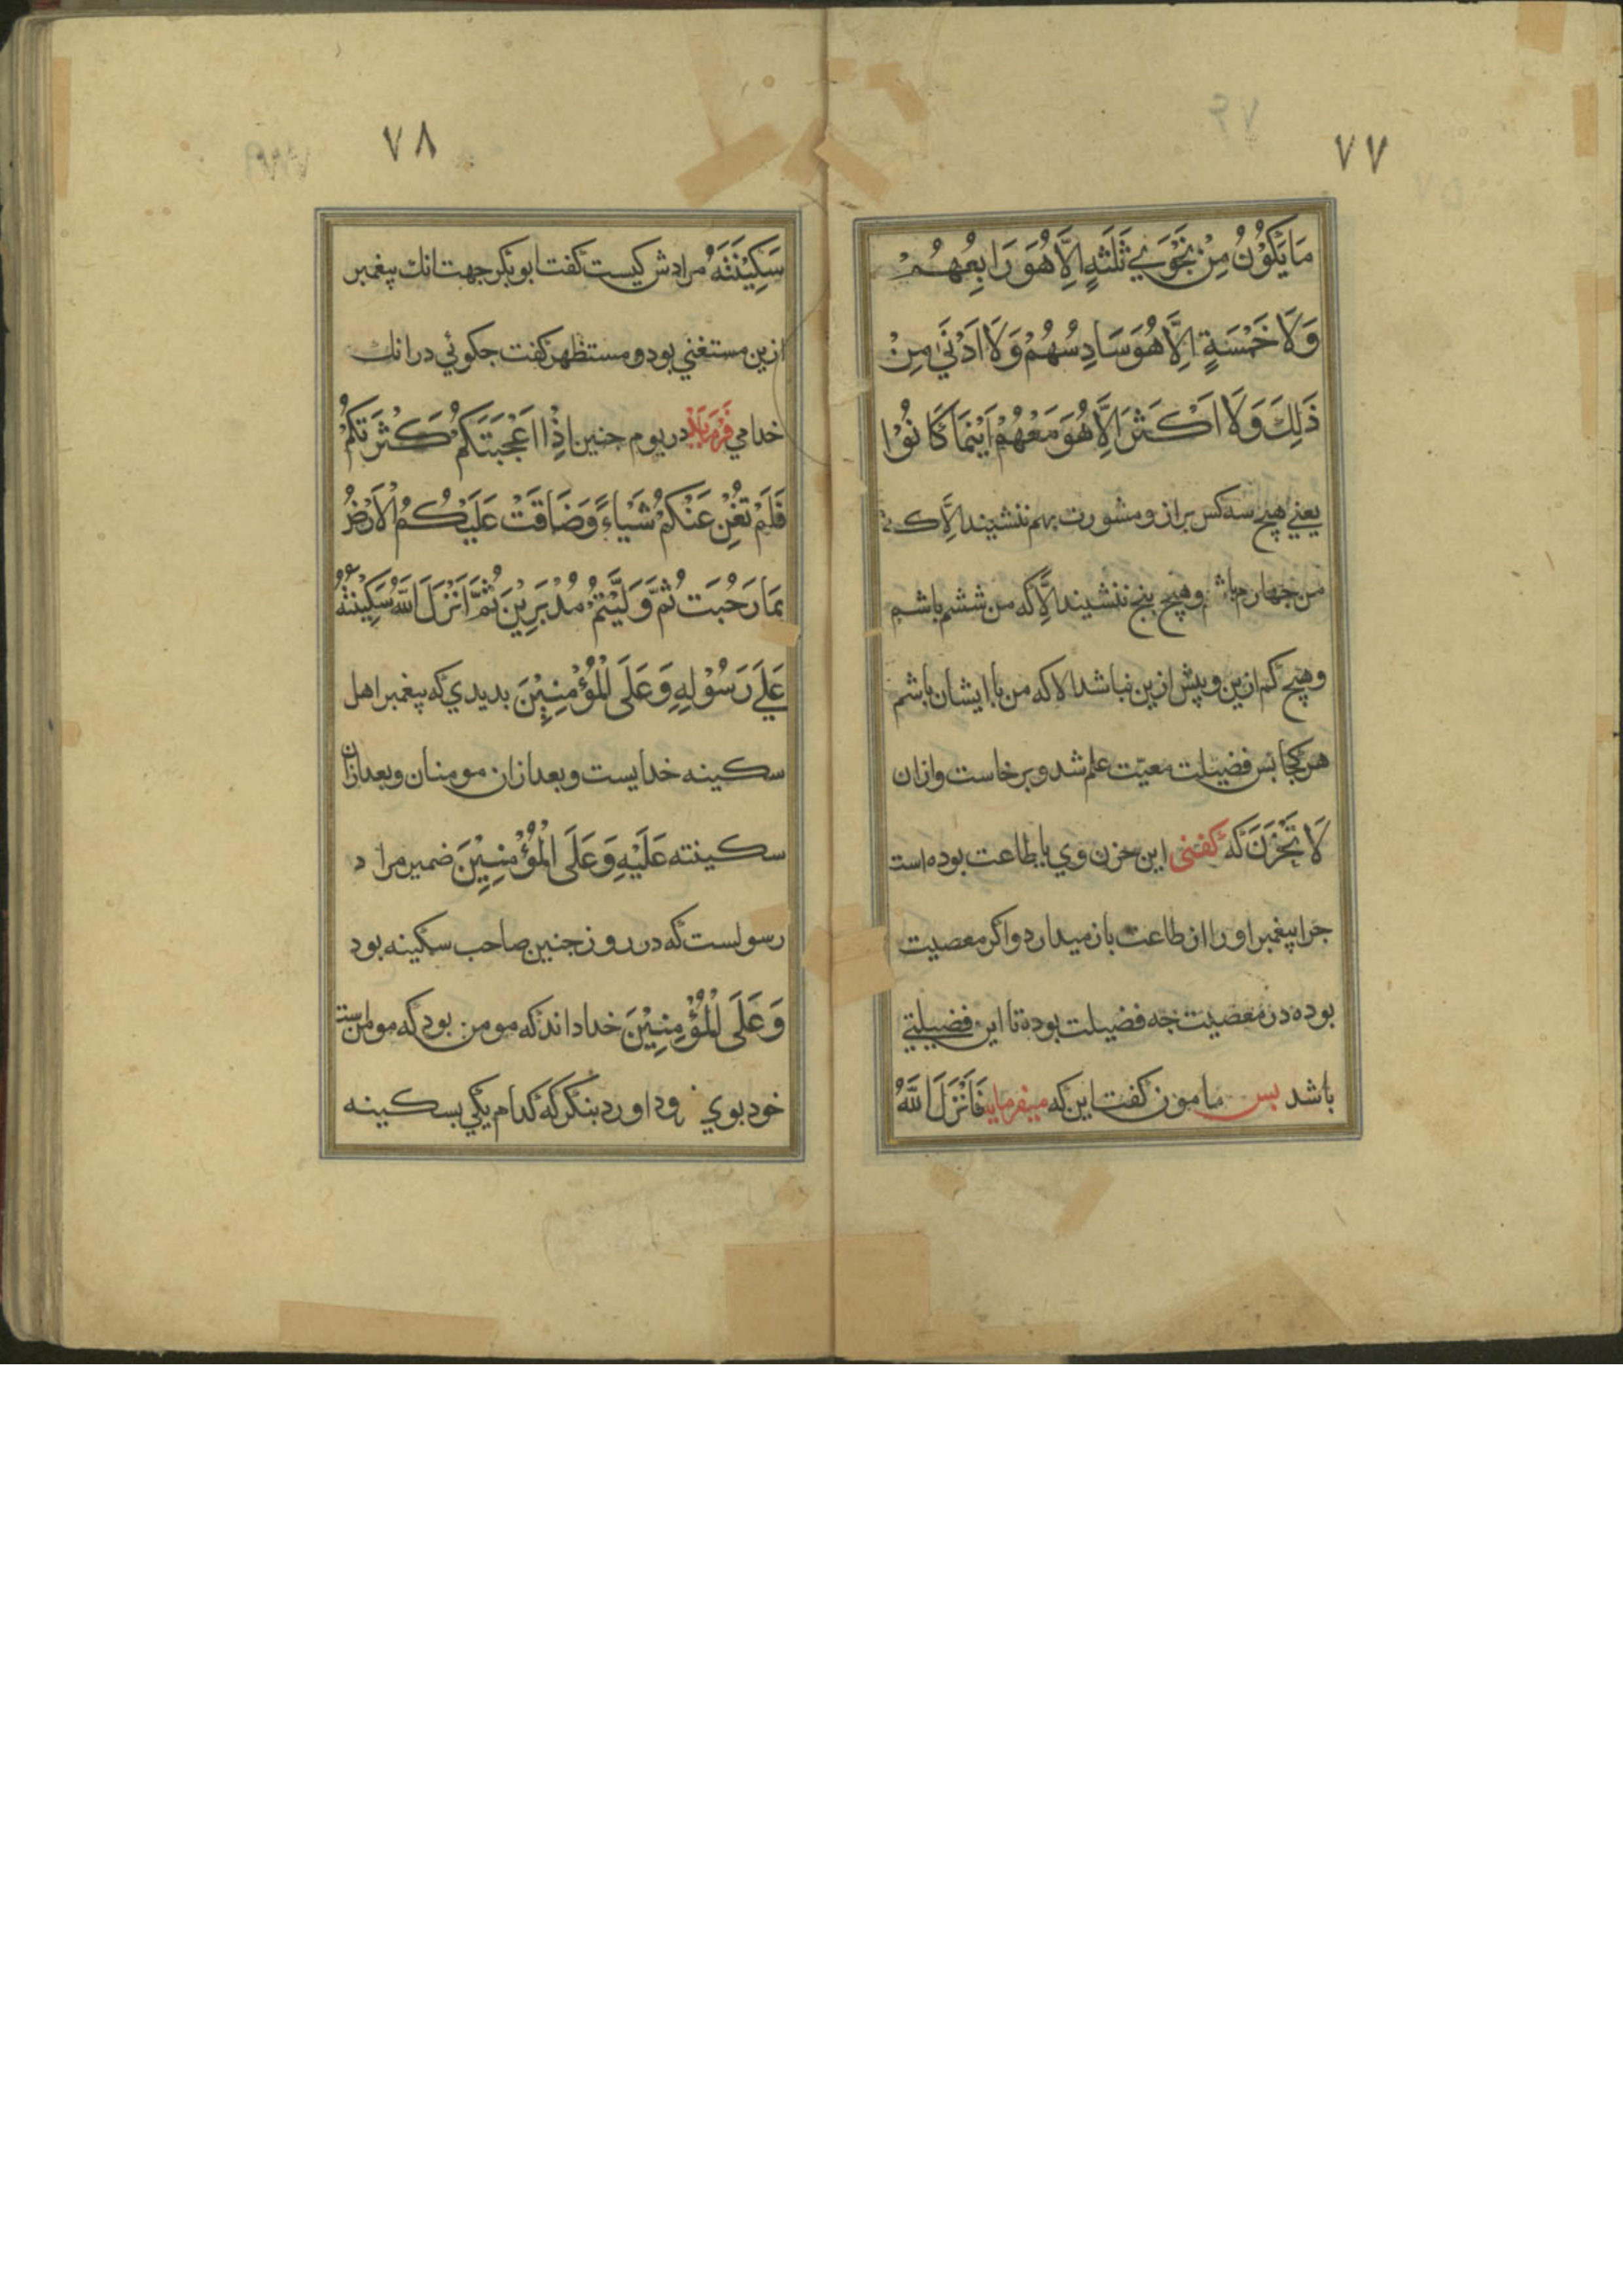 ۷۷
مَا يَكُوْنُ مِنْ نَجْوَيٰ ثَلٰثَةٍ اِلَّا هُوَ رَابِعُهُمْ
وَلَا خَمْسَةٍ اِلَّا هُوَ سَادِسُهُمْ وَلَا اَدْنٰي مِنْ
ذٰلِكَ وَلَا اَكْثَرَ اِلَّا هُوَ مَعَهُمْ اَيْنَمَا كَانُوْا
يعني هيچ سه کس براز و مشورت بهم ننشيند الّا که
من جهارم باشم وهيچ پنج ننشيند الّا که من ششم باشم
وهيچ کم ازين و پيش ازين نباشد الا که من با ايشان باشم
هر کجا بس فضيلت معيّت علم شد و برخاست و ازان
لَا تَحْزَنْ که گفتی اين حزن وي يا بطاعت بوده است
جرا پيغمبر او را از طاعت باز ميدارد و اکر معصيت
بوده در معصيت جه فضيلت بوده تا اين فضيلتي
باشد بس مامون کفت اين که ميفرمايد فَاَنْزَلَ اللّٰهُ
۷۸
سَكِيْنَتَهُ مرادش کيست کفت ابو بکر جهت انك پيغمبر
ازين مستغني بود و مستظهر کفت جکوئي در انك
خدا مي فرمايد در يوم حنين اِذْ اَعْجَبَتْكُمْ كَثْرَتُكُمْ
فَلَمْ تُغْنِ عَنْكُمْ شَيْاءً وَضَاقَتْ عَلَيْكُمُ الْاَرْضُ
بِمَا رَحُبَتْ ثُمَّ وَلَّيْتُمْ مُدْبِرِيْنَ ثُمَّ اَنْزَلَ اللّٰهُ سَكِيْنَتَهُ
عَلٰي رَسُوْلِهِ وَعَلَي الْمُؤْمِنِيْنَ بديدي که پيغمبر اهل
سکينه خدايست و بعد ازان مومنان و بعد ازان
سكينته عَلَيْهِ وَعَلَي الْمُؤْمِنِيْنَ ضمير مراد
رسولست که در روز حنين صاحب سکينه بود
وَعَلَي الْمُؤْمِنِيْنَ خدا داند که مومن بود که مومن است
خود بوي فرود اورد بنکر که کدام يکي بسکينه